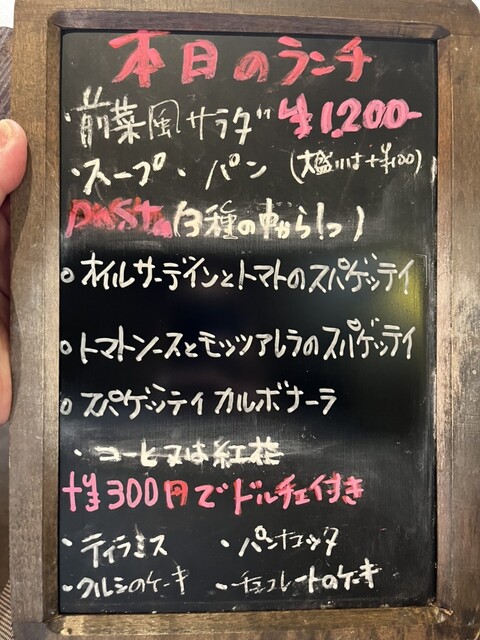 本日のランチ
・前菜風サラダ" ¥1,200-
・スープ・パン (大盛りは+¥100)
Pasta (3種の中から1つ)
○オイルサーディンとトマトのスパゲッティ
○トマトソースとモッツアレラのスパゲッティ
○スパゲッティ カルボナーラ
・コーヒー又は紅茶
+¥300円でドルチェ付き
・ティラミス ・パンナコッタ
・クルミのケーキ ・チョコレートのケーキ